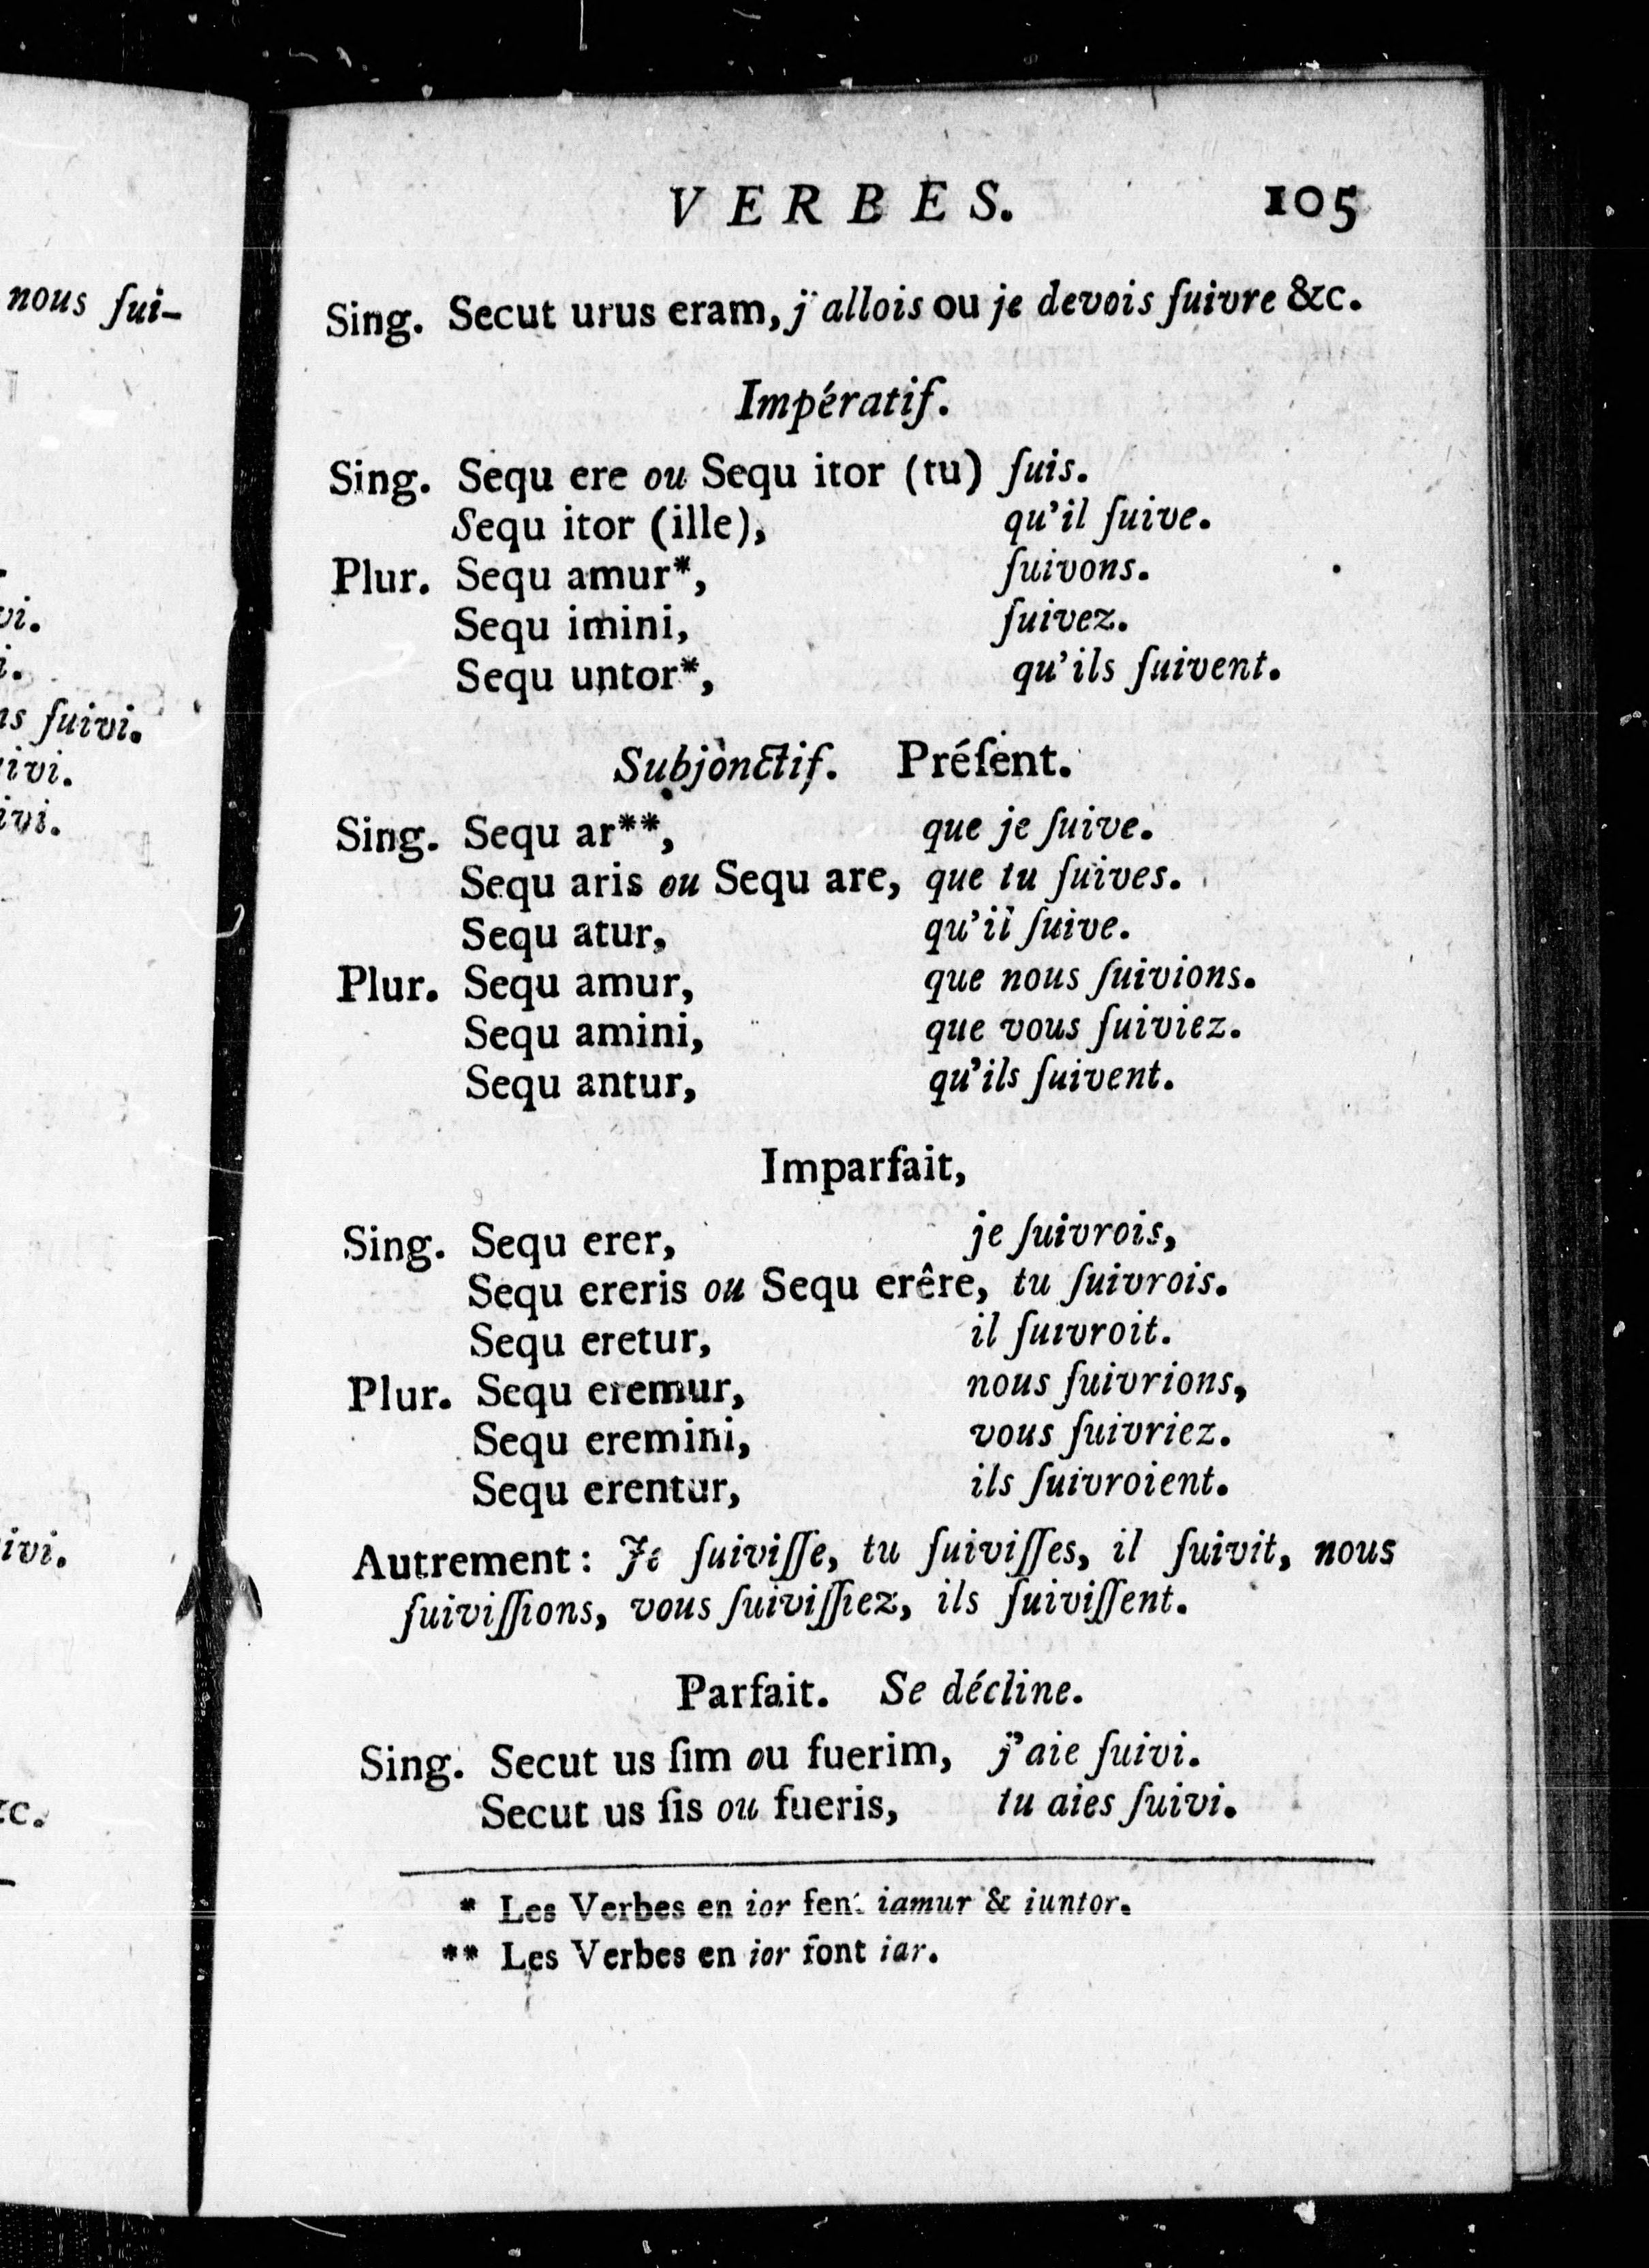 nous ſui-
vi.
i.
ns ſuivi.
ivi.
ivi.
ivi.
&c.
VERBES. 105
Sing. Secut urus eram, j'allois ou je devois ſuivre &c.
Impératif.
Sing. Sequ ere ou Sequ itor (tu) ſuis.
Sequ itor (ille), qu'il ſuive.
Plur. Sequ amur*, ſuivons.
Sequ imini, ſuivez.
Sequ untor*, qu'ils ſuivent.
Subjonctif. Préſent.
Sing. Sequ ar**, que je ſuive.
Sequ aris ou Sequ are, que tu ſuives.
Sequ atur, qu'il ſuive.
Plur. Sequ amur, que nous ſuivions.
Sequ amini, que vous ſuiviez.
Sequ antur, qu'ils ſuivent.
Imparfait,
Sing. Sequ erer, je ſuivrois,
Sequ ereris ou Sequ erêre, tu ſuivrois.
Sequ eretur, il ſuivroit.
Plur. Sequ eremur, nous ſuivrions,
Sequ eremini, vous ſuivriez.
Sequ erentur, ils ſuivroient.
Autrement: Je ſuiviſſe, tu ſuiviſſes, il ſuivit, nous
ſuiviſſions, vous ſuiviſſiez, ils ſuiviſſent.
Parfait. Se décline.
Sing. Secut us ſim ou fuerim, j'aie ſuivi.
Secut us ſis ou fueris, tu aies ſuivi.
* Les Verbes en ior font iamur & iuntor.
** Les Verbes en ior font iar.